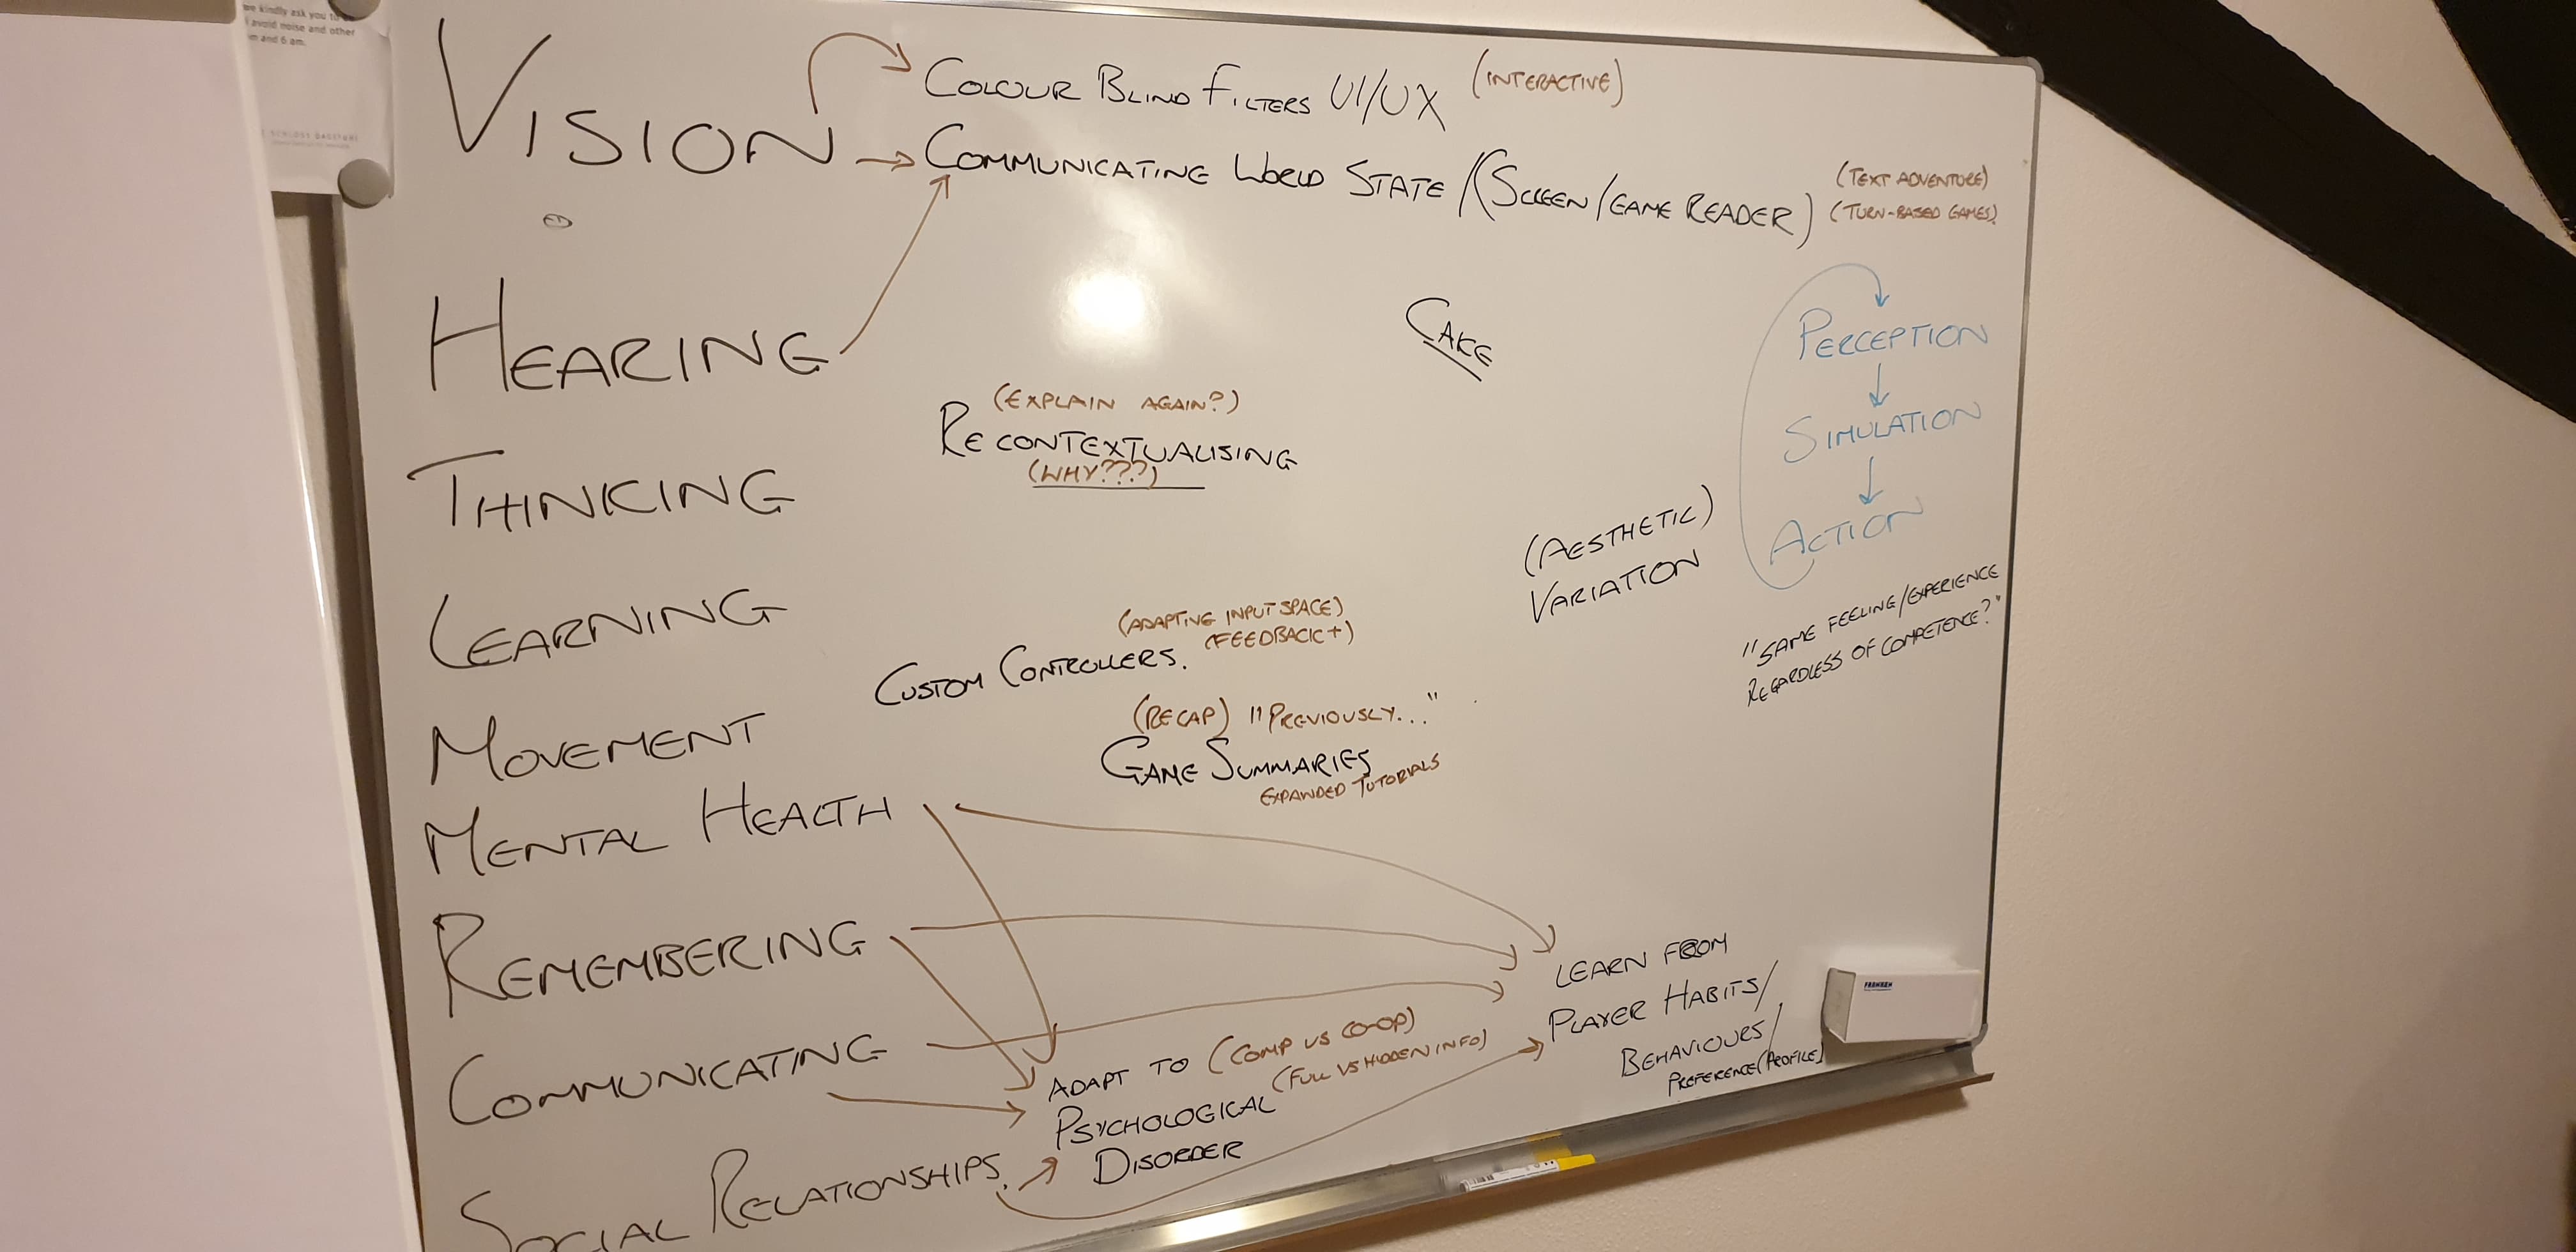 we kindly ask you to
avoid noise and other
m and 6 am.
SCHLOSS DAGSTUHL
VISION
COLOUR BLIND FILTERS UI/UX (INTERACTIVE)
COMMUNICATING WORLD STATE /(SCREEN/GAME READER) (TEXT ADVENTURE)
(TURN-BASED GAMES)
HEARING
CAKE
PERCEPTION
SIMULATION
ACTION
(EXPLAIN AGAIN?)
RECONTEXTUALISING
(WHY???)
THINKING
(AESTHETIC)
VARIATION
"SAME FEELING/EXPERIENCE
REGARDLESS OF COMPETENCE?"
LEARNING
(ADAPTIVE INPUT SPACE)
(FEEDBACK+)
CUSTOM CONTROLLERS.
MOVEMENT
(RECAP) "PREVIOUSLY..."
GAME SUMMARIES
EXPANDED TUTORIALS
MENTAL HEALTH
REMEMBERING
LEARN FROM
PLAYER HABITS/
BEHAVIOURS/
PREFERENCE(PROFILE)
FRANKEN
COMMUNICATING
ADAPT TO (COMP VS CO-OP)
(FULL VS HIDDEN INFO)
PSYCHOLOGICAL
DISORDER
SOCIAL RELATIONSHIPS.